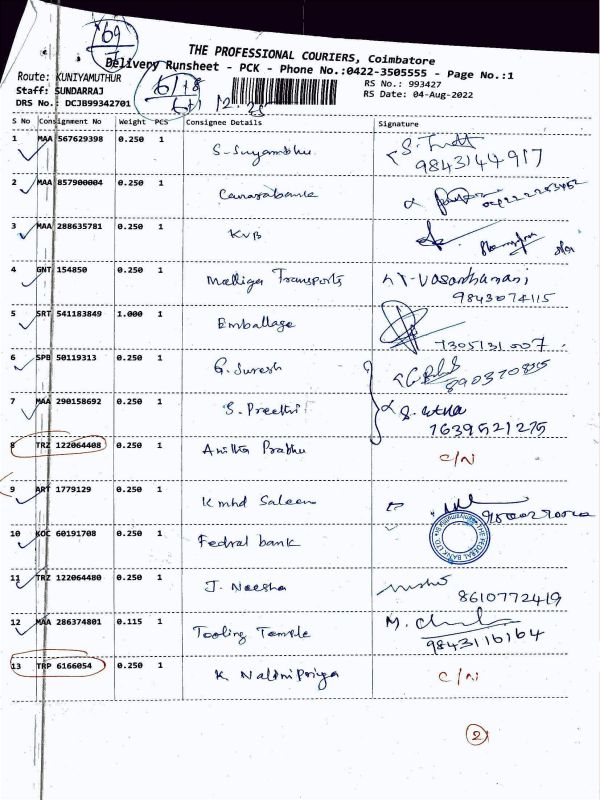 169
7
THE PROFESSIONAL COURIERS, Coimbatore
Delivery Runsheet - PCK - Phone No.:0422-3505555 - Page No.:1
Route: KUNIYAMUTHUR
RS No.: 993427
Staff: SUNDARRAJ
61+8
RS Date: 04-Aug-2022
DRS No.: DCJB99342701
12.25
S No Consignment No Weight PCS Consignee Details Signature
1 MAA 567629398 0.250 1 S. Suyambhu
9843144917
2 MAA 857900004 0.250 1 Canarabank
3 MAA 288635781 0.250 1 KVB
4 GNT 154850 0.250 1 Malliga Transports T-Vasanthamani
9843074115
5 SRT 541183849 1.000 1 Emballage
7305131007
6 SPB 50119313 0.250 1 G. Suresh
7 MAA 290158692 0.250 1 S. Preethi
7639521275
8 TRZ 122064408 0.250 1 Anitha Prabhu C/N
9 ART 1779129 0.250 1 K mhd Saleem
10 KOC 60191708 0.250 1 Fedral bank THE FEDERAL BANK LTD.
11 TRZ 122064480 0.250 1 J. Neesha
8610772419
12 MAA 286374801 0.115 1 Tooling Temple M.
9843116164
13 TRP 6166054 0.250 1 K NaliniPriya C/N
2